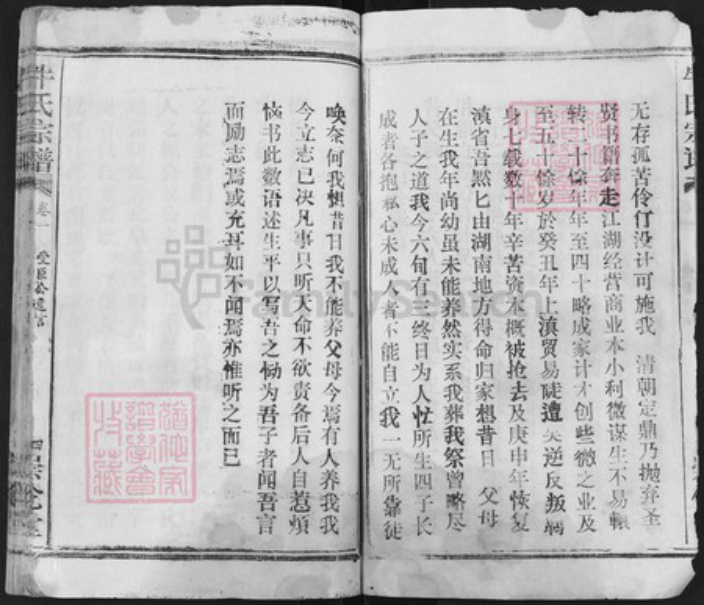 无存孤苦伶仃没计可施我 清朝定鼎乃抛弃圣
贤书籍奔走江湖经营商业本小利微谋生不易輾
转二十馀年年至四十略成家计才创些微之业及
至五十馀岁於癸丑年上滇贸易陡遭 逆反叛羁
身七载数十年辛苦资本概被抢去及庚申年恢复
滇省吾黙匕由湖南地方得命归家想昔日 父母
在生我年尚幼虽未能养然实系我葬我祭曾略尽
人子之道我今六旬有三终日为人忙所生四子长
成者各抱私心未成人者不能自立我一无所靠徒
唤奈何我想昔日我不能养父母今焉有人养我我
今立志已决凡事只听天命不欲责备后人自惹烦
恼书此数语述生平以写吾之恸为吾子者闻吾言
而励志焉或充耳如不闻焉亦惟听之而已
牛氏宗谱
卷一
受臣公遗言
FamilySearch